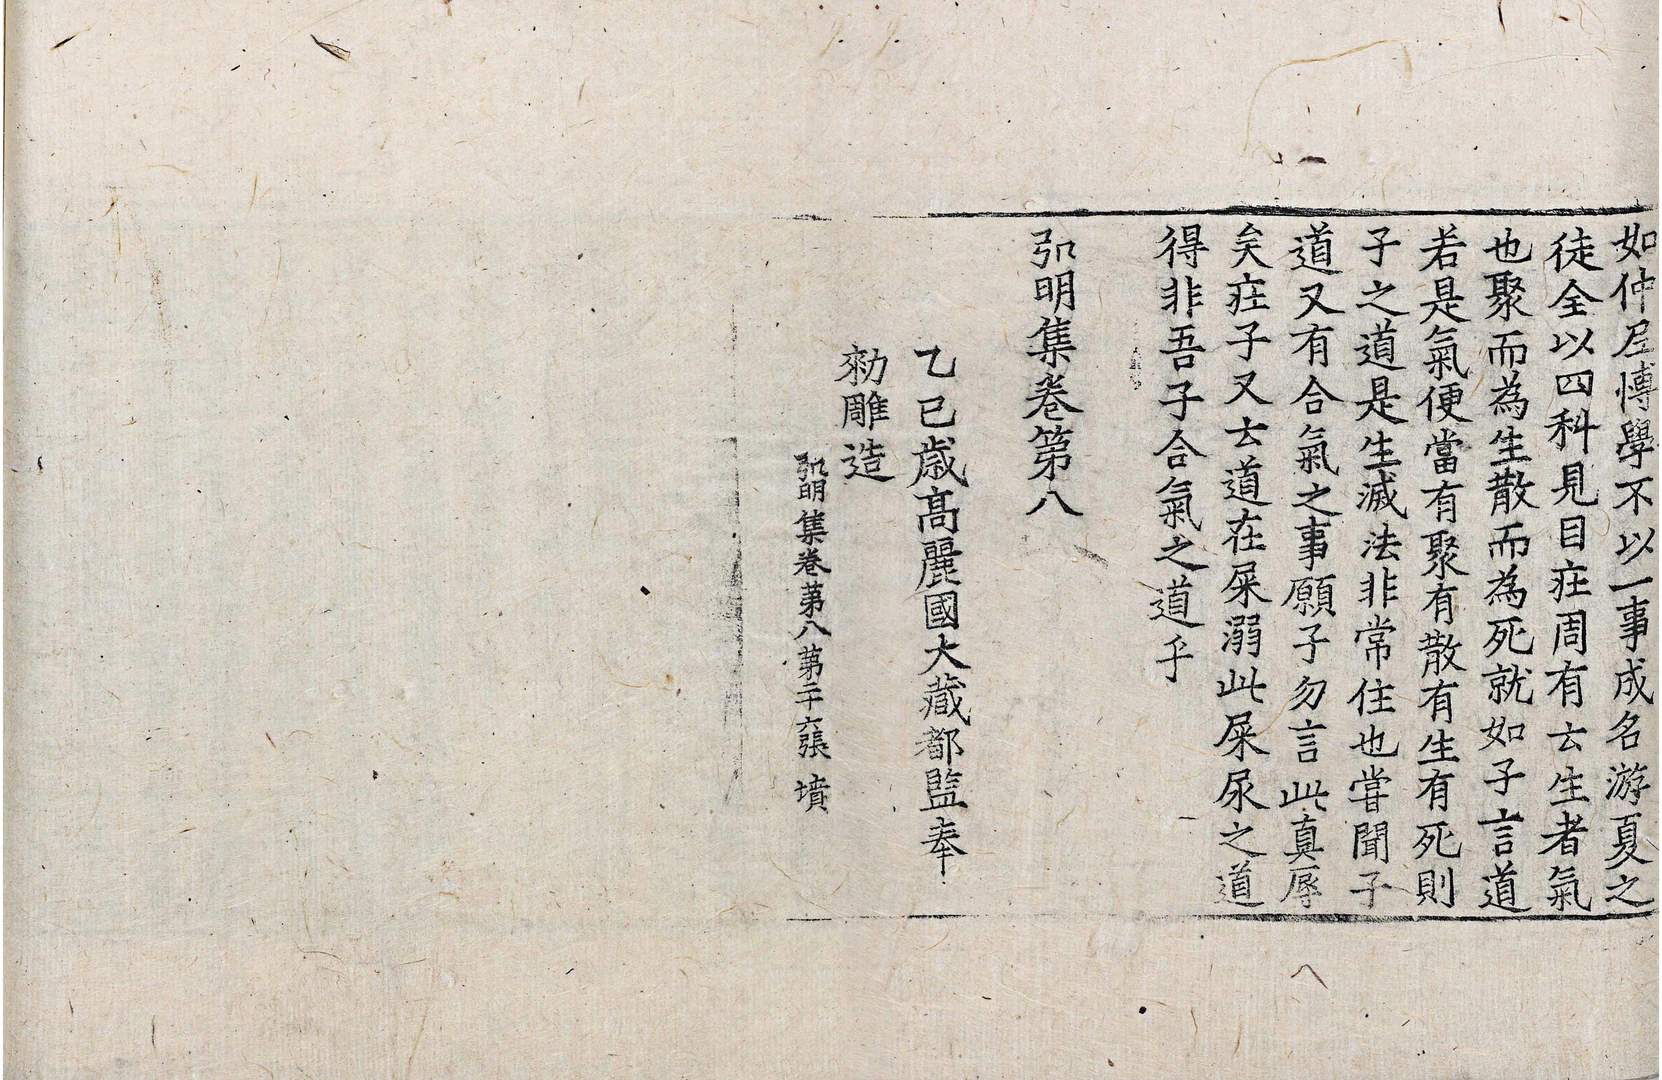 如仲尼愽學不以一事成名游夏之
徒全以四科見目庄周有云生者氣
也聚而為生散而為死就如子言道
若是氣便當有聚有散有生有死則
子之道是生滅法非常住也嘗聞子
道又有合氣之事願子勿言此真辱
矣庄子又云道在屎溺此屎尿之道
得非吾子合氣之道乎
弘明集卷第八
乙巳歳髙麗國大藏都監奉
勑雕造
弘明集卷第八 第二十六張 墳